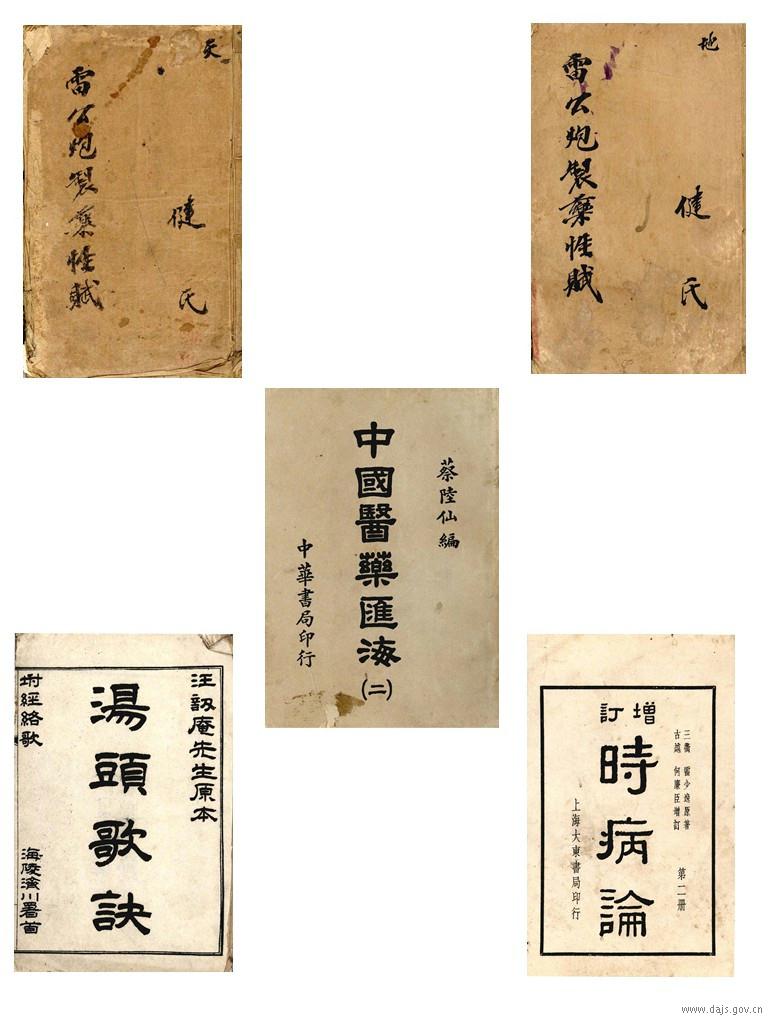 天
健氏
雷公炮製藥性賦
地
健氏
雷公炮製藥性賦
蔡陸仙編
中國醫藥匯海(二)
中華書局印行
汪訒庵先生原本
湯頭歌訣
坿經絡歌
海陵濱川署首
增訂
三衢 雷少逸原著
古越 何廉臣增訂
第二册
時病論
上海大東書局印行
www.dajs.gov.cn